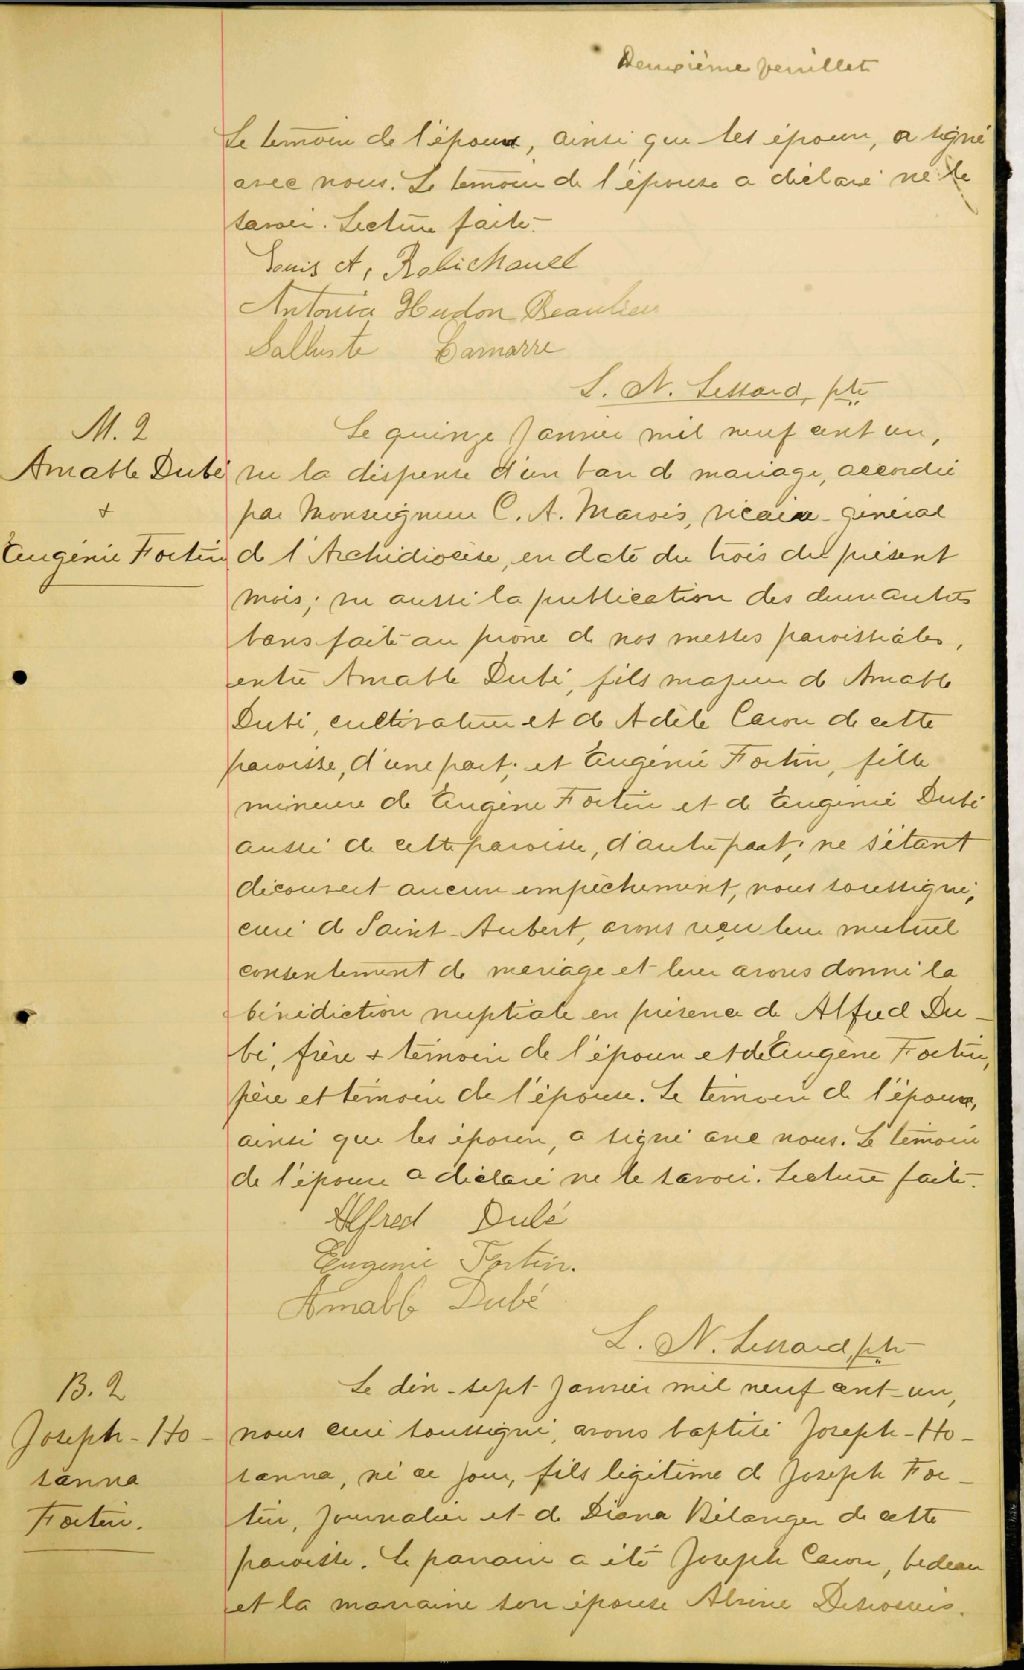 Deuxième feuillet
Le temoin de l'époux, ainsi que les époux, a signé
avec nous. Le temoin de l'épouse a déclaré ne le
savoir. Lecture faite.
Louis A. Robichaud
Antonia Hudon Beaulieu
Salluste Lamarre
L. N. Lessard, ptre
M. 2
Amable Dubé
&
Eugénie Fortin
Le quinze Janvier mil neuf cent un,
vu la dispense d'un ban de mariage, accordée
par Monseigneur C. A. Marois, vicaire-général
de l'Archidiocèse, en date du trois du présent
mois; vu aussi la publication des deux autres
bans faite au prône de nos messes paroissiales,
entre Amable Dubé, fils majeur de Amable
Dubé, cultivateur et de Adèle Caron de cette
paroisse, d'une part; et Eugénie Fortin, fille
mineure de Eugène Fortin et de Eugénie Dubé
aussi de cette paroisse, d'autre part; ne s'étant
découvert aucun empêchement, nous soussigné,
curé de Saint-Aubert, avons reçu leur mutuel
consentement de mariage et leur avons donné la
bénédiction nuptiale en présence de Alfred Du-
bé, frère & témoin de l'époux et de Eugène Fortin,
père et témoin de l'épouse. Le témoin de l'époux,
ainsi que les époux, a signé avec nous. Le témoin
de l'épouse a déclaré ne le savoir. Lecture faite.
Alfred Dubé
Eugenie Fortin.
Amable Dubé
L. N. Lessard, ptre
B. 2
Joseph-Ho-
sanna
Fortin.
Le dix-sept Janvier mil neuf cent-un,
nous curé soussigné, avons baptisé Joseph-Ho-
sanna, né ce jour, fils légitime de Joseph For-
tin, journalier et de Diana Bélanger de cette
paroisse. Le parrain a été Joseph Caron, bedeau
et la marraine son épouse Desrosiers.